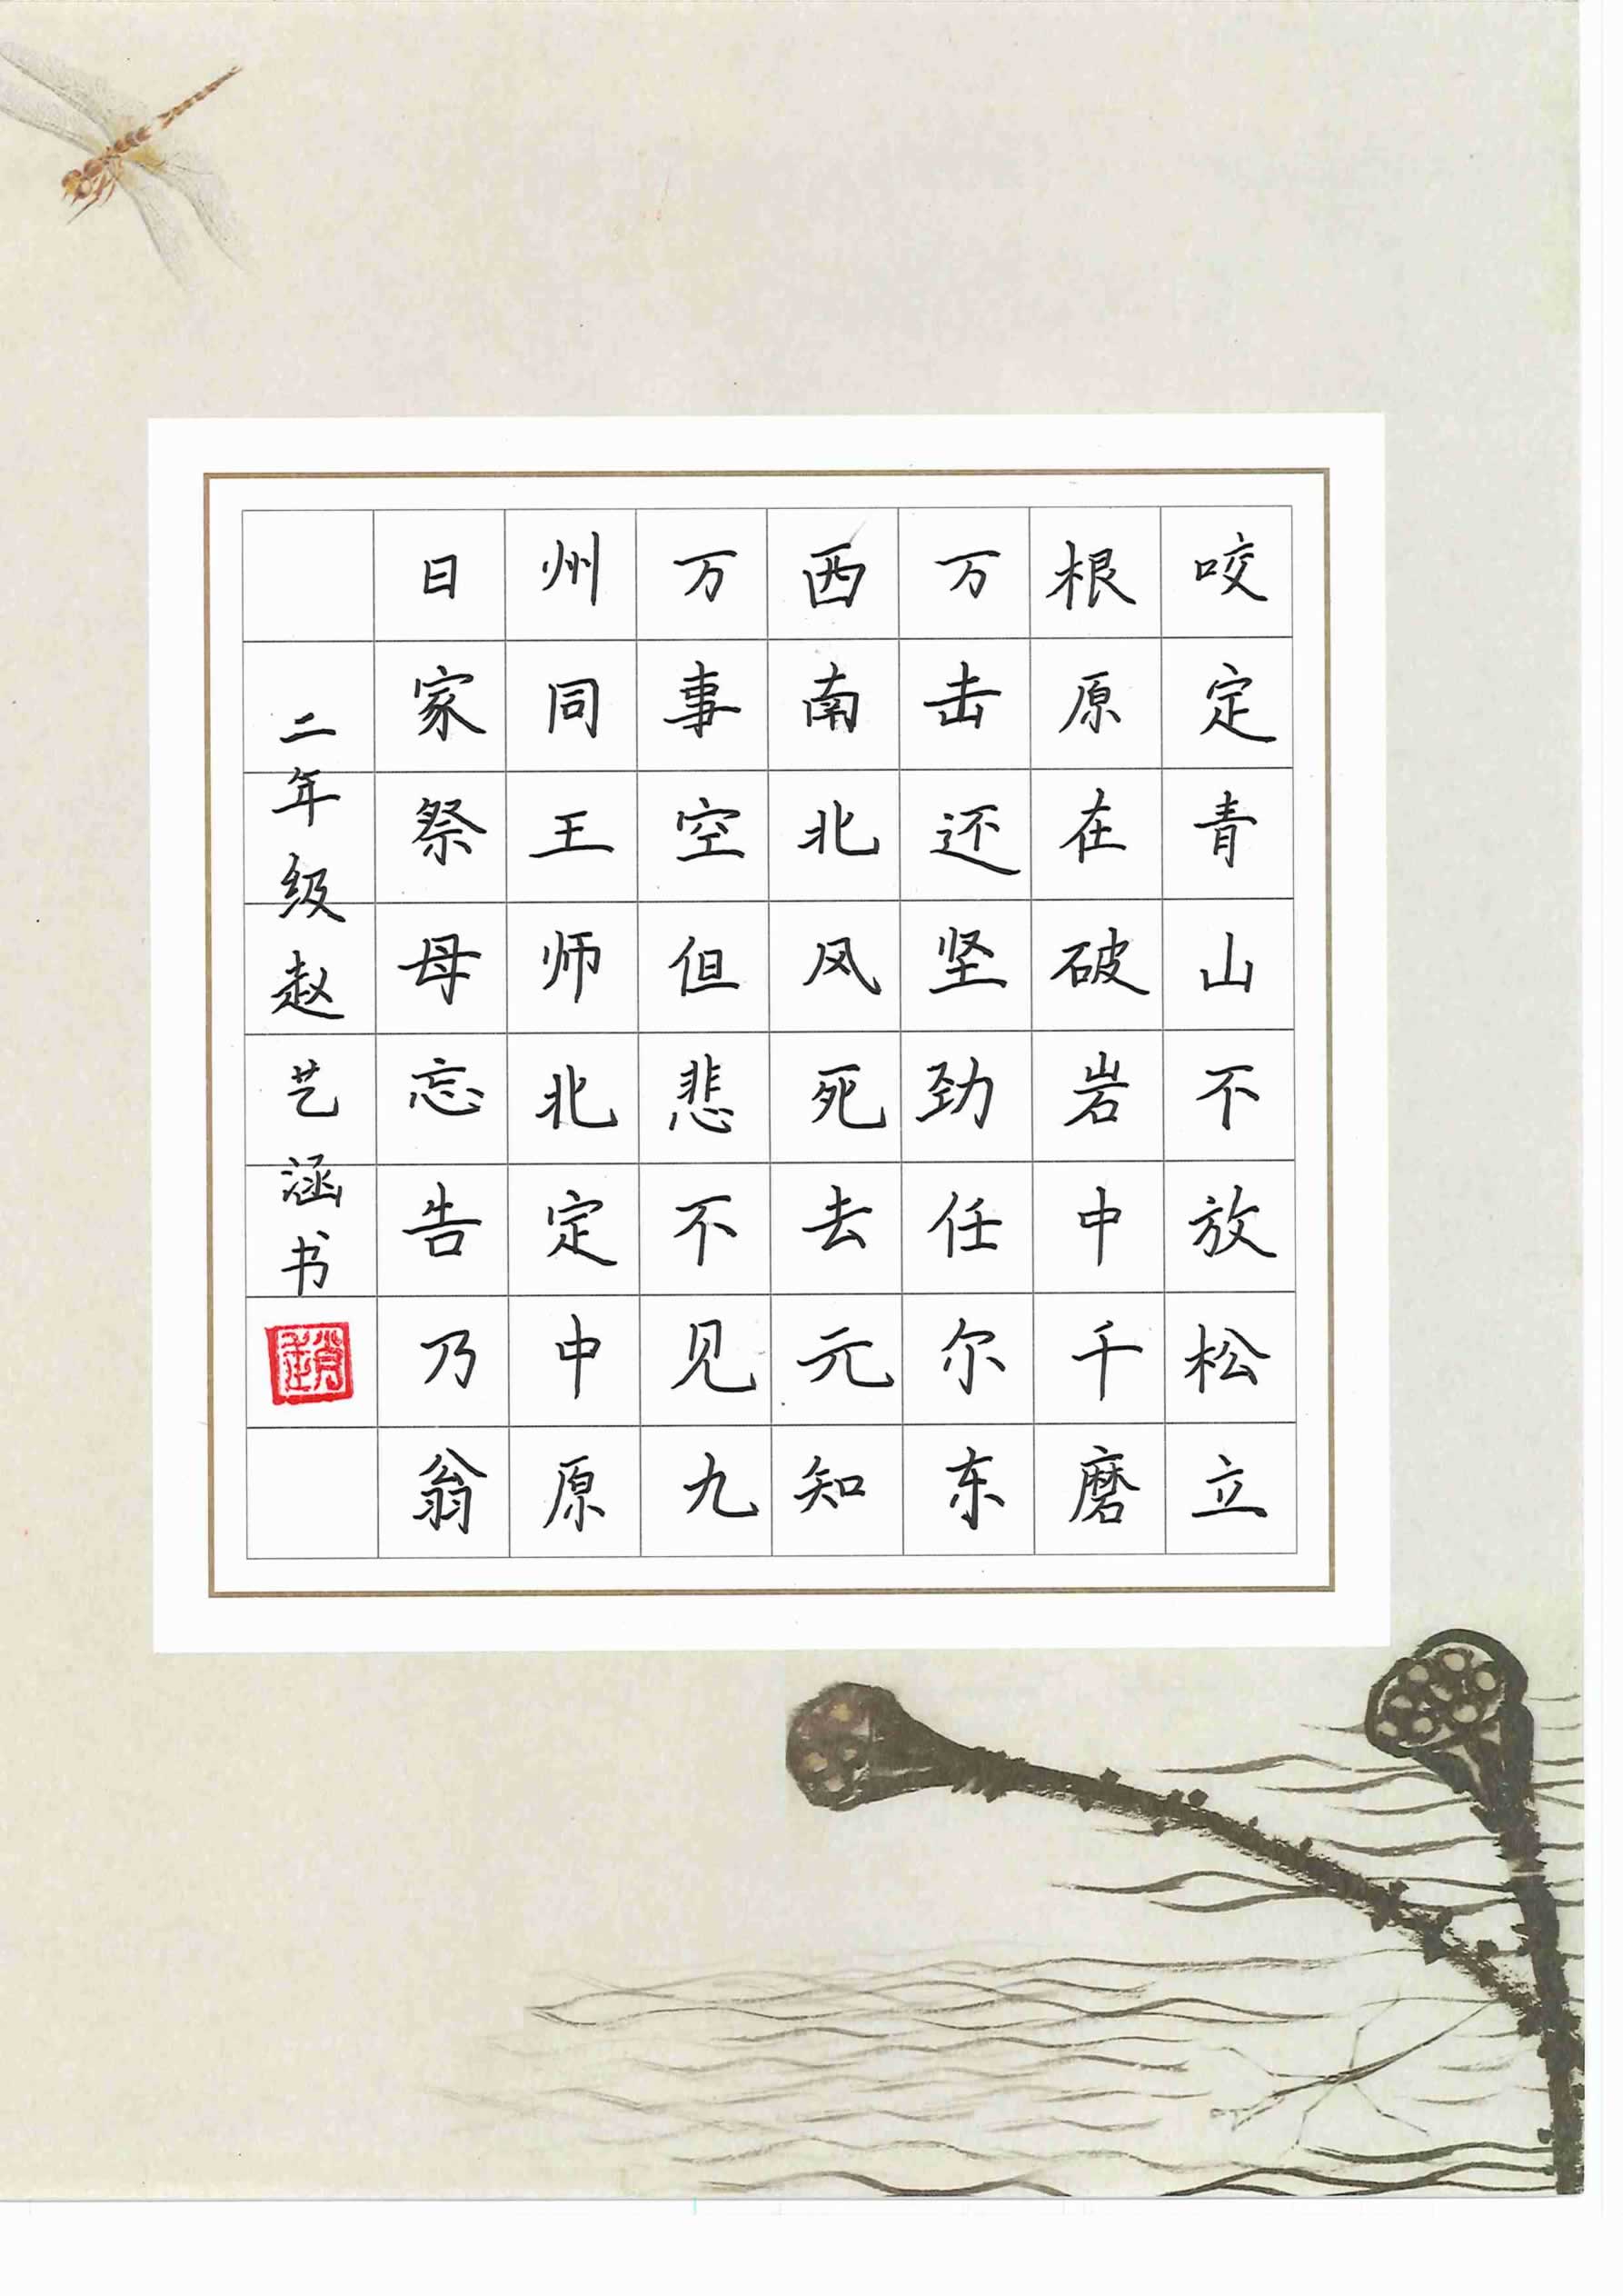 咬定青山不放松立
根原在破岩中千磨
万击还坚劲任尔东
西南北风死去元知
万事空但悲不见九
州同王师北定中原
日家祭毋忘告乃翁
二年级赵艺涵书
趙